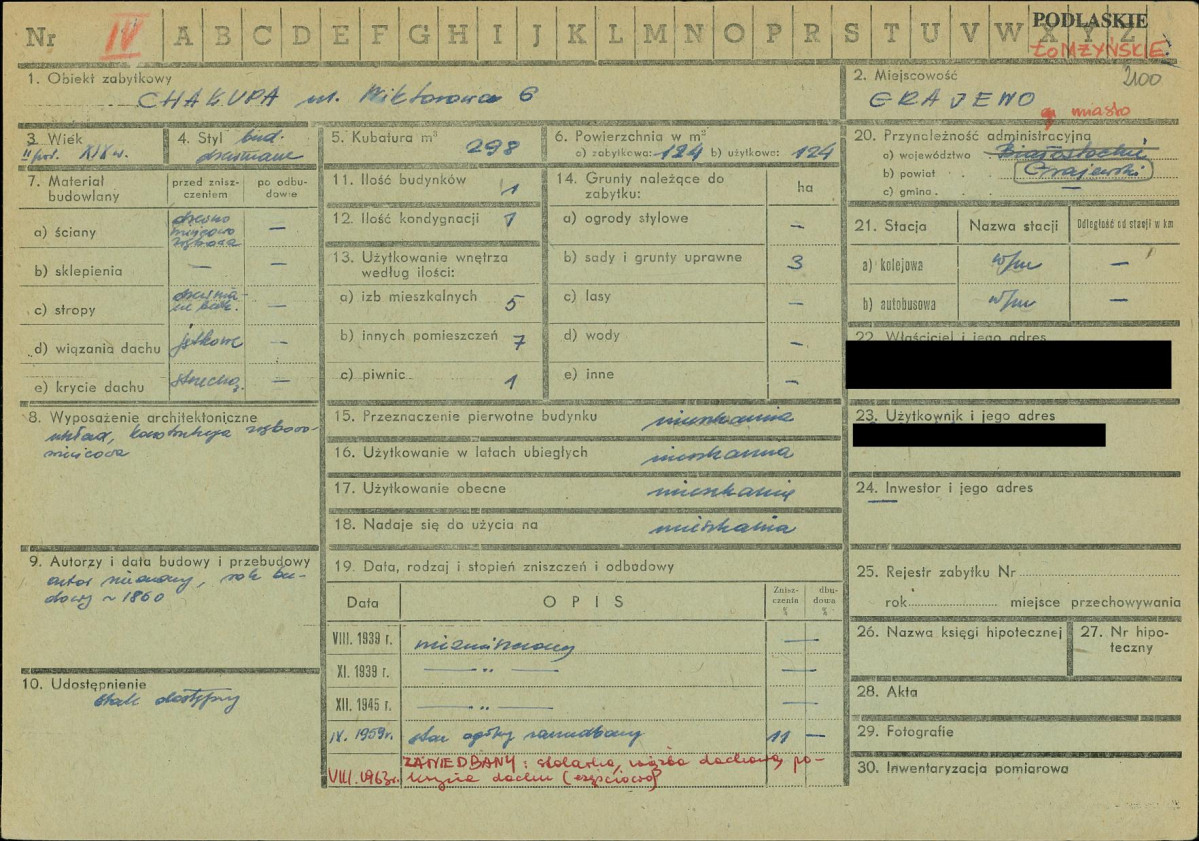 Nr IV A B C D E F G H I J K L M N O P R S T U V W X Y Z
PODLASKIE
ŁOMŻYŃSKIE
1. Obiekt zabytkowy
CHAŁUPA ul. Wiktorowa 6
2. Miejscowość 2100
GRAJEWO
miasto
3. Wiek
II poł. XIX w.
4. Styl bud.
drewniane
5. Kubatura m³ 298
6. Powierzchnia w m²
a) zabytkowa: 124 b) użytkowa: 124
20. Przynależność administracyjna
a) województwo Białostockie
b) powiat Grajewski
c) gmina —
7. Materiał budowlany
przed zniszczeniem
po odbudowie
a) ściany drewno —
b) sklepienia — —
c) stropy —
d) wiązania dachu jętkowe —
e) krycie dachu strzecha —
8. Wyposażenie architektoniczne
układ, konstrukcja zrębowo-
9. Autorzy i data budowy i przebudowy
autor nieznany, rok bu-
dowy ~ 1860
10. Udostępnienie
stale dostępny
11. Ilość budynków 1
12. Ilość kondygnacji 1
13. Użytkowanie wnętrza
według ilości:
a) izb mieszkalnych 5
b) innych pomieszczeń 7
c) piwnic 1
14. Grunty należące do
zabytku:
ha
a) ogrody stylowe —
b) sady i grunty uprawne 3
c) lasy —
d) wody —
e) inne —
15. Przeznaczenie pierwotne budynku mieszkania
16. Użytkowanie w latach ubiegłych mieszkania
17. Użytkowanie obecne mieszkanie
18. Nadaje się do użycia na mieszkania
19. Data, rodzaj i stopień zniszczeń i odbudowy
Data OPIS Zniszczenia % dbudowa %
VIII. 1939 r. niezniszczony —
XI. 1939 r. — " — —
XII. 1945 r. — " — —
IX. 1959 r. stan ogólny zaniedbany 11 —
VIII. 1963 r. ZANIEDBANY: stolarka, więźba dachowa, po-
krycie dachu (częściowo)
21. Stacja Nazwa stacji Odległość od stacji w km
a) kolejowa w/m —
b) autobusowa w/m —
22. Właściciel i jego adres
23. Użytkownik i jego adres
24. Inwestor i jego adres
—
25. Rejestr zabytku Nr
rok miejsce przechowywania
26. Nazwa księgi hipotecznej
27. Nr hipoteczny
28. Akta
29. Fotografie
30. Inwentaryzacja pomiarowa